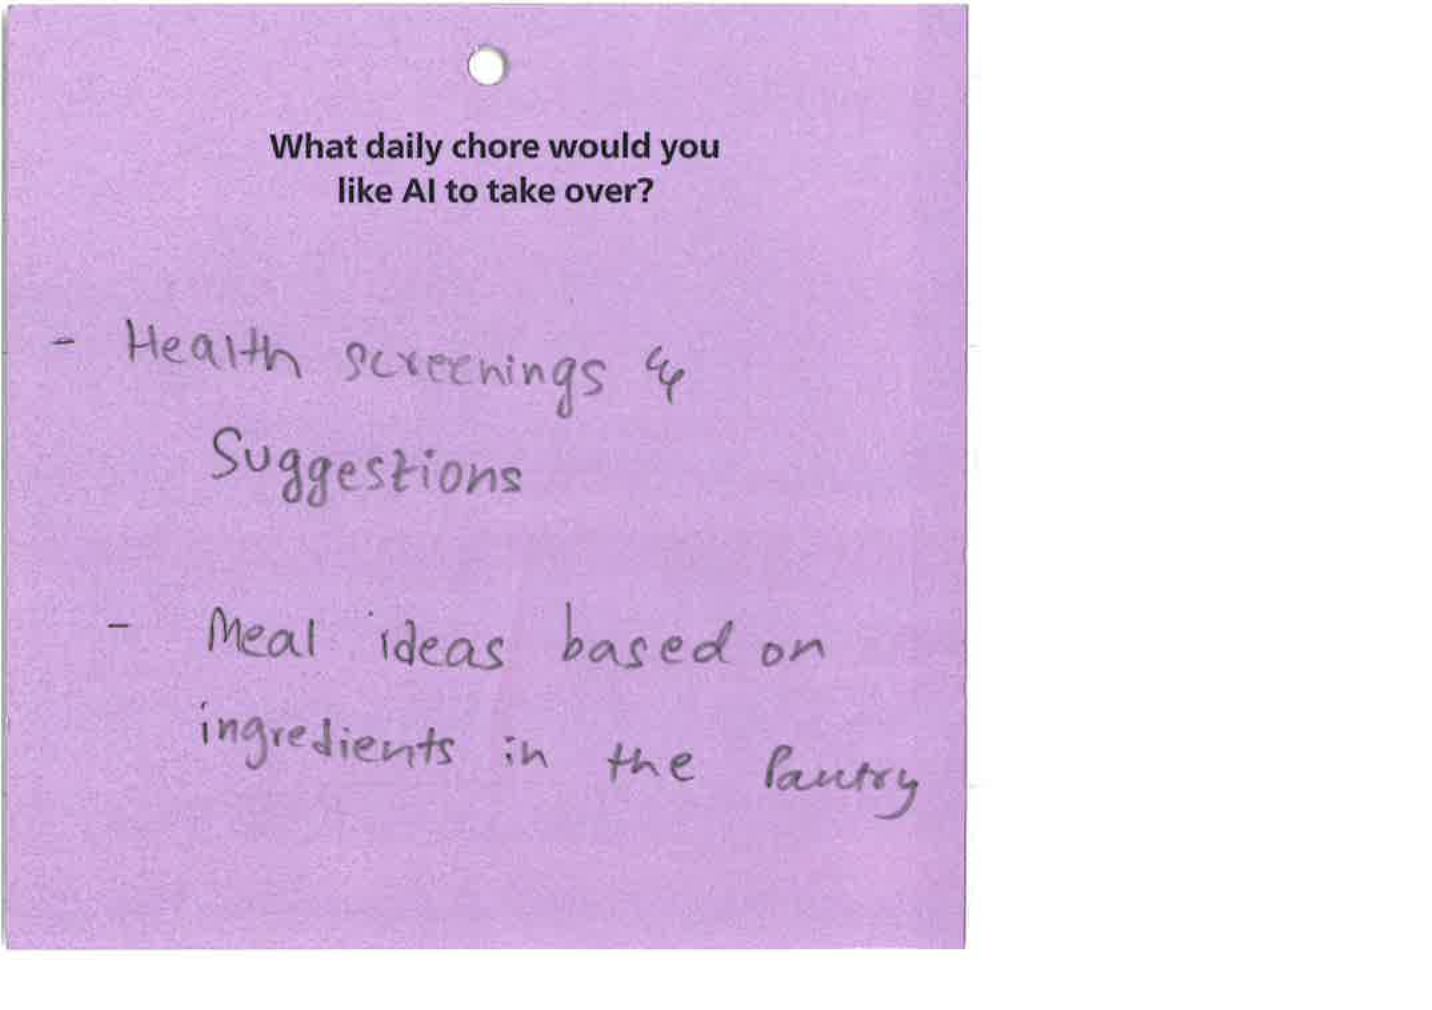 What daily chore would you
like AI to take over?
- Health screenings &
Suggestions
- Meal ideas based on
ingredients in the Pantry